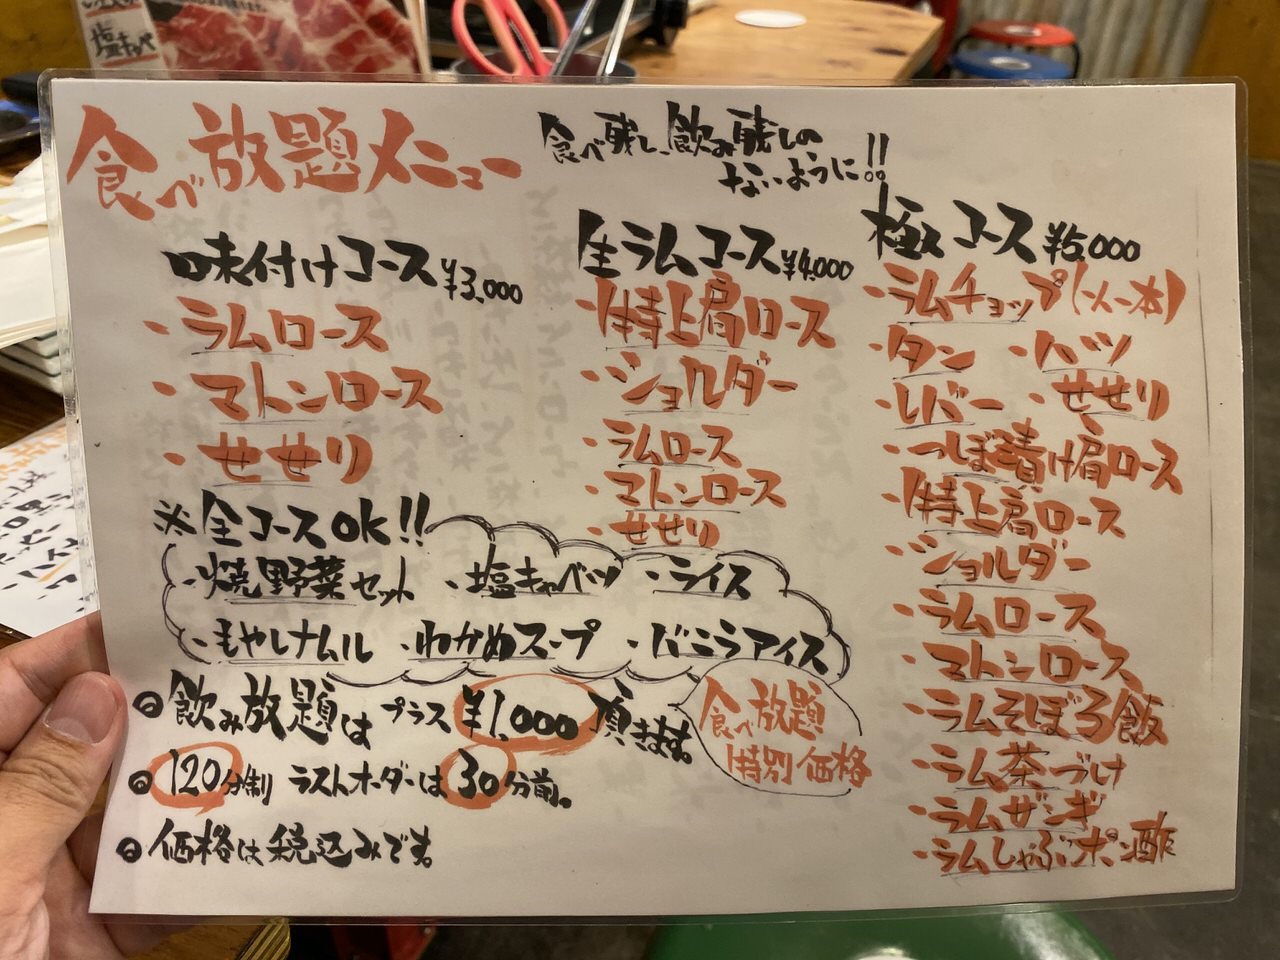 塩キャベ
食べ放題メニュー
食べ残し、飲み残しの
ないように!!
味付けコース ¥3,000
・ラムロース
・マトンロース
・せせり
生ラムコース ¥4,000
・特上肩ロース
・ショルダー
・ラムロース
・マトンロース
・せせり
極コース ¥5,000
・ラムチョップ(一人一本)
・タン ・ハツ
・レバー ・せせり
・つぼ漬け肩ロース
・特上肩ロース
・ショルダー
・ラムロース
・マトンロース
・ラムそぼろ飯
・ラム茶づけ
・ラムザンギ
・ラムしゃぶポン酢
※全コースOK!!
・焼野菜セット ・塩キャベツ ・ライス
・もやしナムル ・わかめスープ ・バニラアイス
◎飲み放題は プラス ¥1,000 頂きます。
食べ放題
特別価格
◎120分制 ラストオーダーは30分前。
◎価格は税込みです。